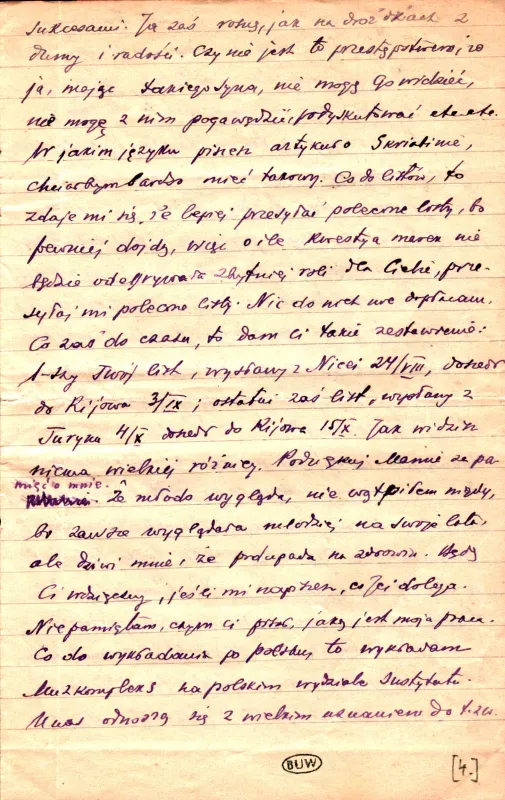 sukcesami. Ja zaś rosnę, jak na drożdżach z
dumy i radości. Czy nie jest to przestępstwem, że
ja, mając takiego syna, nie mogę go widzieć,
nie mogę z nim pogawędzić, podyskutować etc etc.
W jakim języku piszesz artykuł o Skriabinie,
chciałbym bardzo mieć takowy. Co do listów, to
zdaje mi się, że lepiej przesyłać polecone listy, bo
pewniej dojdą, więc o ile kwestya marek nie
będzie odegrywała zbytniej roli dla Ciebie, prze-
syłaj mi polecone listy. Nic do nich nie dopłacam.
Co zaś do czasu, to dam Ci takie zestawienie:
1-szy Twój list, wysłany z Nicei 24/VIII, doszedł
do Kijowa 3/IX; ostatni zaś list, wysłany z
Turynu 4/X doszedł do Kijowa 15/X. Jak widzisz
niema wielkiej różnicy. Podziękuj Mamie za pa-
mięć o mnie.
Że młodo wygląda, nie wątpiłem nigdy,
bo zawsze wyglądała młodziej na swoje lata,
ale dziwi mnie, że podupada na zdrowiu. Będę
Ci wdzięczny, jeśli mi napiszesz, co Jej dolega.
Nie pamiętam, czym Ci pisał, jaką jest moja praca.
Co do wykładania po polsku, to wykładam
Muzkompleks na polskim wydziale Instytutu.
U nas odnoszą się z wielkim uznaniem do t. zw.
BUW
[4.]